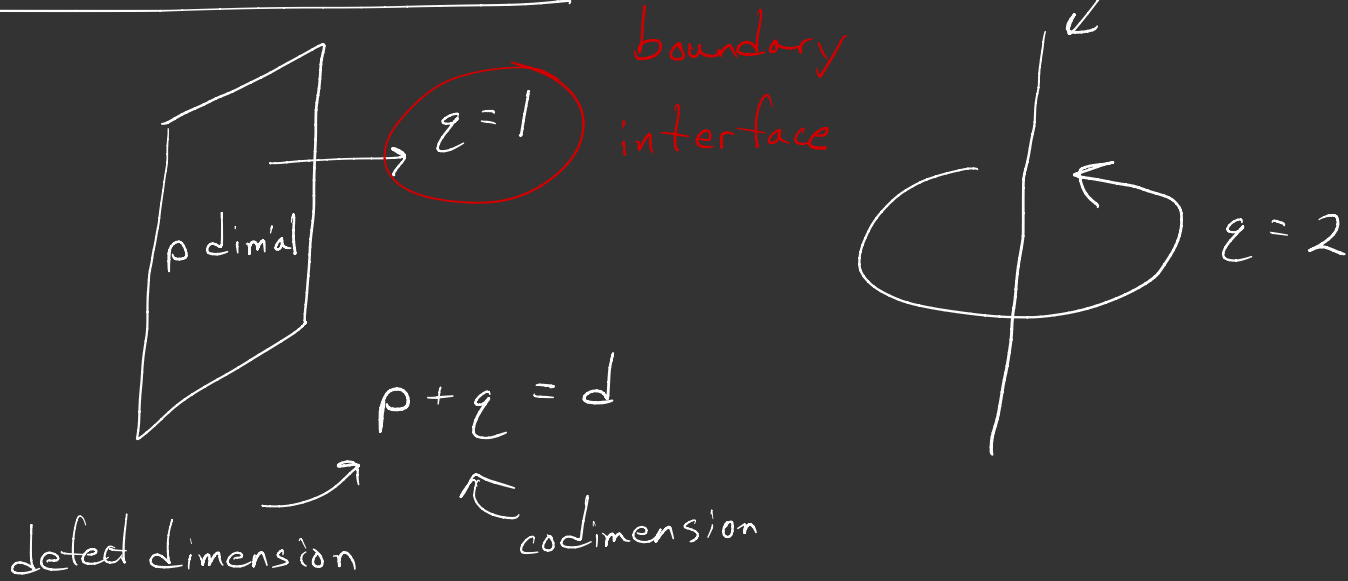 boundary
q = 1
interface
p dim'al
q = 2
p + q = d
defect dimension
codimension